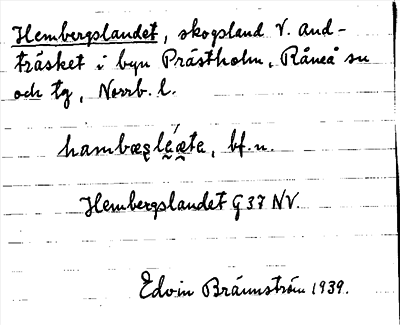 Hembergslandet, skogsland V. And-
träsket i byn Prästholm, Råneå sn
och tg, Norrb. l.
hambæʂle̯ǽ̯te, bf.n.
Hembergslandet G 37 NV.
Edvin Brännström 1939.